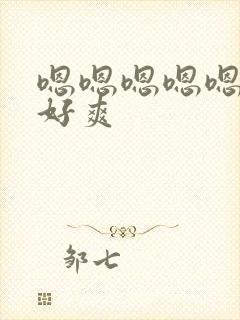 嗯嗯嗯嗯嗯
好爽
邹七